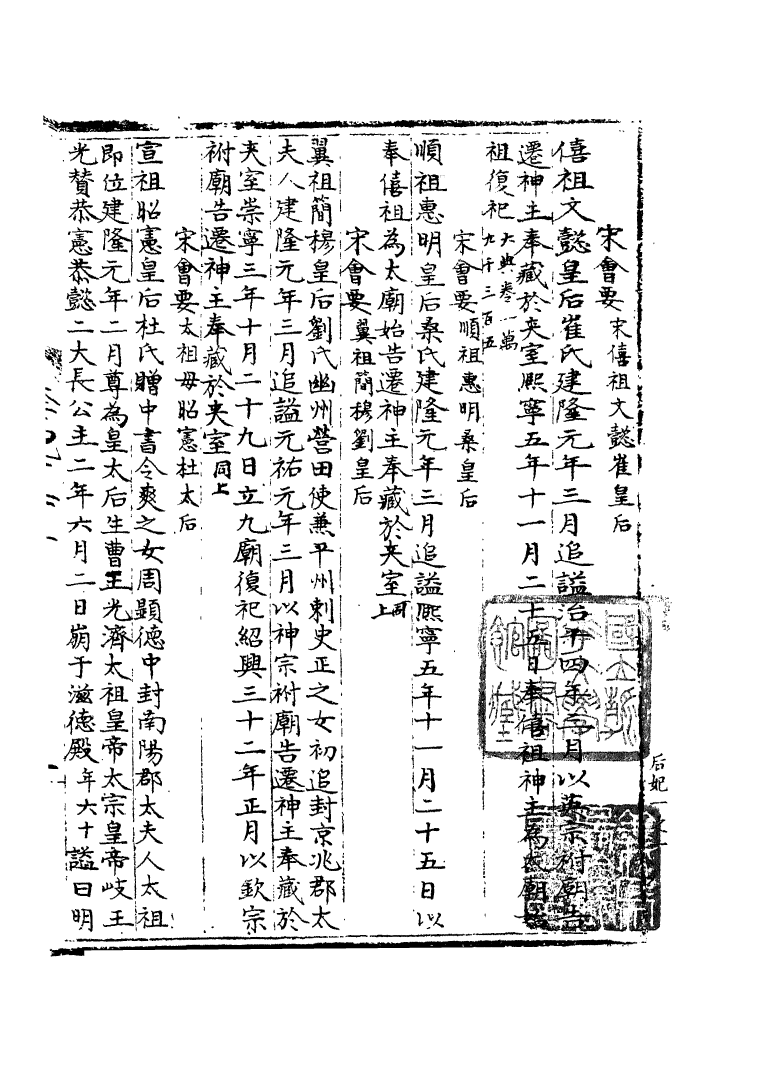 宋會要 宋僖祖文懿崔皇后
僖祖文懿皇后崔氏建隆元年三月追謚治平四年三月以英宗祔廟告
遷神主奉藏於夾室熙寧五年十一月二十五日奉僖祖神主為太廟始
祖復祀 大典卷一萬九千三百五
宋會要 順祖惠明桑皇后
順祖惠明皇后桑氏建隆元年三月追謚熙寧五年十一月二十五日以
奉僖祖為太廟始告遷神主奉藏於夾室 同上
宋會要 翼祖簡穆劉皇后
翼祖簡穆皇后劉氏幽州營田使兼平州刺史正之女初追封京兆郡太
夫人建隆元年三月追謚元祐元年三月以神宗祔廟告遷神主奉藏於
夾室崇寧三年十月二十九日立九廟復祀紹興三十二年正月以欽宗
祔廟告遷神主奉藏於夾室 同上
宋會要 太祖母昭憲杜太后
宣祖昭憲皇后杜氏贈中書令爽之女周顯德中封南陽郡太夫人太祖
即位建隆元年二月尊為皇太后生曹王光濟太祖皇帝太宗皇帝岐王
光贊恭憲恭懿二大長公主二年六月二日崩于滋德殿 年六十 謚曰明
后妃一之一